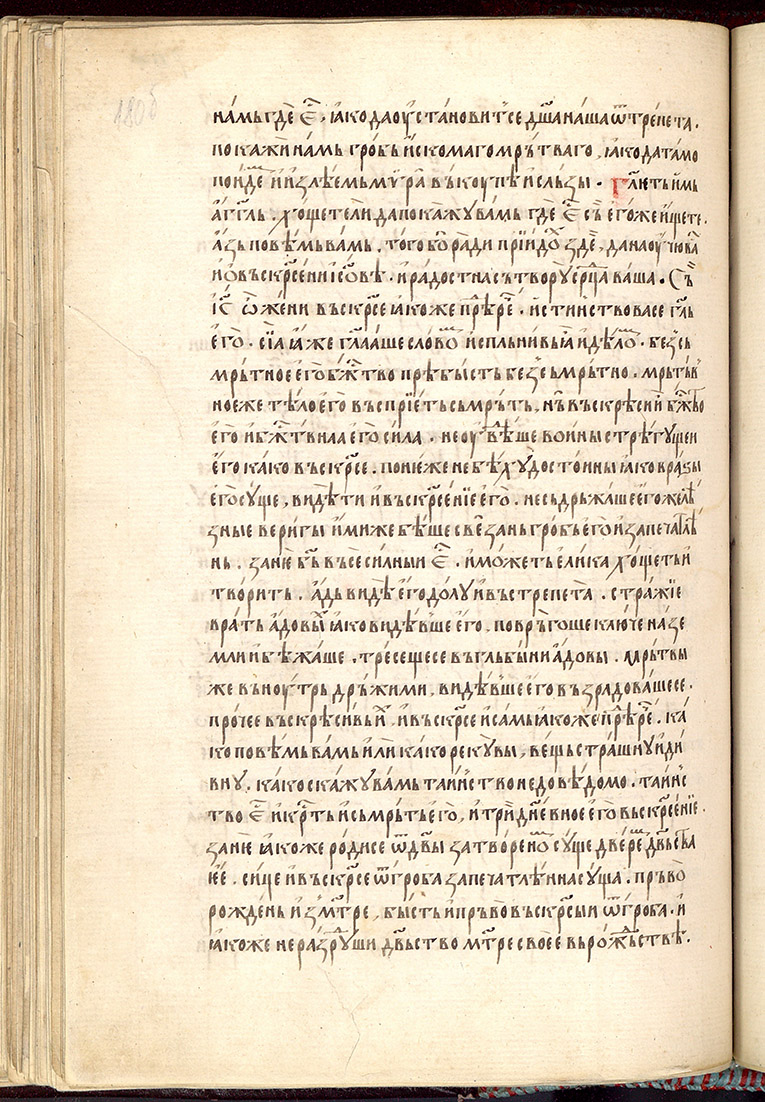 180б
на́мь гдѐ є҃· ꙗ҆ко да оу҆становит҇се дш҃а на́ша ѿ тре́пета.
покажи на́мь гро́бь и҆скомаго мрь́тваго, ꙗ҆ко да та́мо
пои́де и҆ и҆злѣ́емь мѵ́ра вькоу́пѣ и҆ слъзы· Гл҃иеть и҆́мь
а҆гг҃ль. хо́щете ли да покажу ва́мь где є҃ съ его́же и҆́щете.
а҆зь повѣ́мь ва́мь, того̀ бо̀ ра́ди прїидо̑ здѐ, да наоучю ва̑
и҆ о вьскр҃се́ни и҆со́вѣ. и҆ ра́достна сътвору̀ срц҃а ва́ша. Съ
і҆с҃ ѽ же́ни вьскр҃се ꙗ҆коже прѣ́ре҇. и҆стин́ствова се гл҃ь
его̀. сїа̀ ꙗ҆́же гл҃ааше сло́во и҆спльни вы̑ꙗ и҆ дѣ́ло. без̾сь
мрь́тное его̀ бж҇тво прѣбы́сть без̾сьмрь́тно. мрьтьв̾
ное же тѣ́ло его̀ вьспрїе́ть сьмрь́ть, нь̀ вьскрѣси и҆̀ бж҇тво
его̀ и҆ бж҇твнаа его̀ сила. не оу҆вѣ́ше во́ини стрѣгу́щеи
его̀ ка́ко вьскр҃се. поне́же не бѣ́ху досто́ини ꙗ҆ко врази
его̀ су́ще, ви́дѣти и҆ вьскр҃се́нїе его̀. не сьдрьжа́ше его̀ желѣ̀
зные вериги и҆́миже бѣ́ше све́зань гро́бь его̀ и҆ запеча́тлѣ
нь. занѐ бг҃ь вьсеси́лныи є҃. и҆ мо́жеть е҆ли́ка хо́щеть и҆
твори́ть. а҆дь ви́дѣ его̀ до́лу и҆ вьстре́пета. стра́жїе
вра́ть а҆́довы̑ ꙗ҆ко ви́дѣв̾ше его̀. поврь́гоше клю́че на зе
мли и҆ бѣжа́ше. тресе́ще се вь гльбыни а҆́довы. мрь́твы
же вьноу́трь дрьжи́ми, ви́дѣв̾ше его̀ вьзра́доваше се.
про́чее вьскрѣси́вы̑и, и҆ вьскр҃се и҆ са́мь ꙗ҆коже и҆ прѣ́ре҇. ка́
ко повѣ́мь ва́мь и҆ли ка́ко реку̀ вы, ве́щь стра́шну и҆ ди́
вну. ка́ко скажу̀ ва́мь таи́нство недовѣ́домо. таи́нс
тво є҃ и҆ кр҃ть и҆ сьмрь́ть его̀, и҆ трид҃не́вное его̀ вьскр҃се́нїе.
занѐ ꙗ҆коже роди́ се ѿ дв҃ы затворе́но су́ще две́ре дв҃ьства
еѐ. си́це и҆ вьскр҃се ѿ гро́ба запечатлѣ́нна су́ща. прь́во
рожде́нь и҆з̾ мт҃ре, бы́сть и҆ прь́во вьскр҃сыи ѿ гро́ба. и҆
ꙗ҆коже не раз̾руши дв҃ьство мт҃ре свое́е вь рож҇ьствѣ̀.